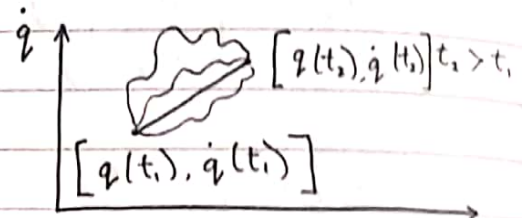 q̇
[q(t₂), q̇(t₂)] t₂ > t₁
[q(t₁), q̇(t₁)]